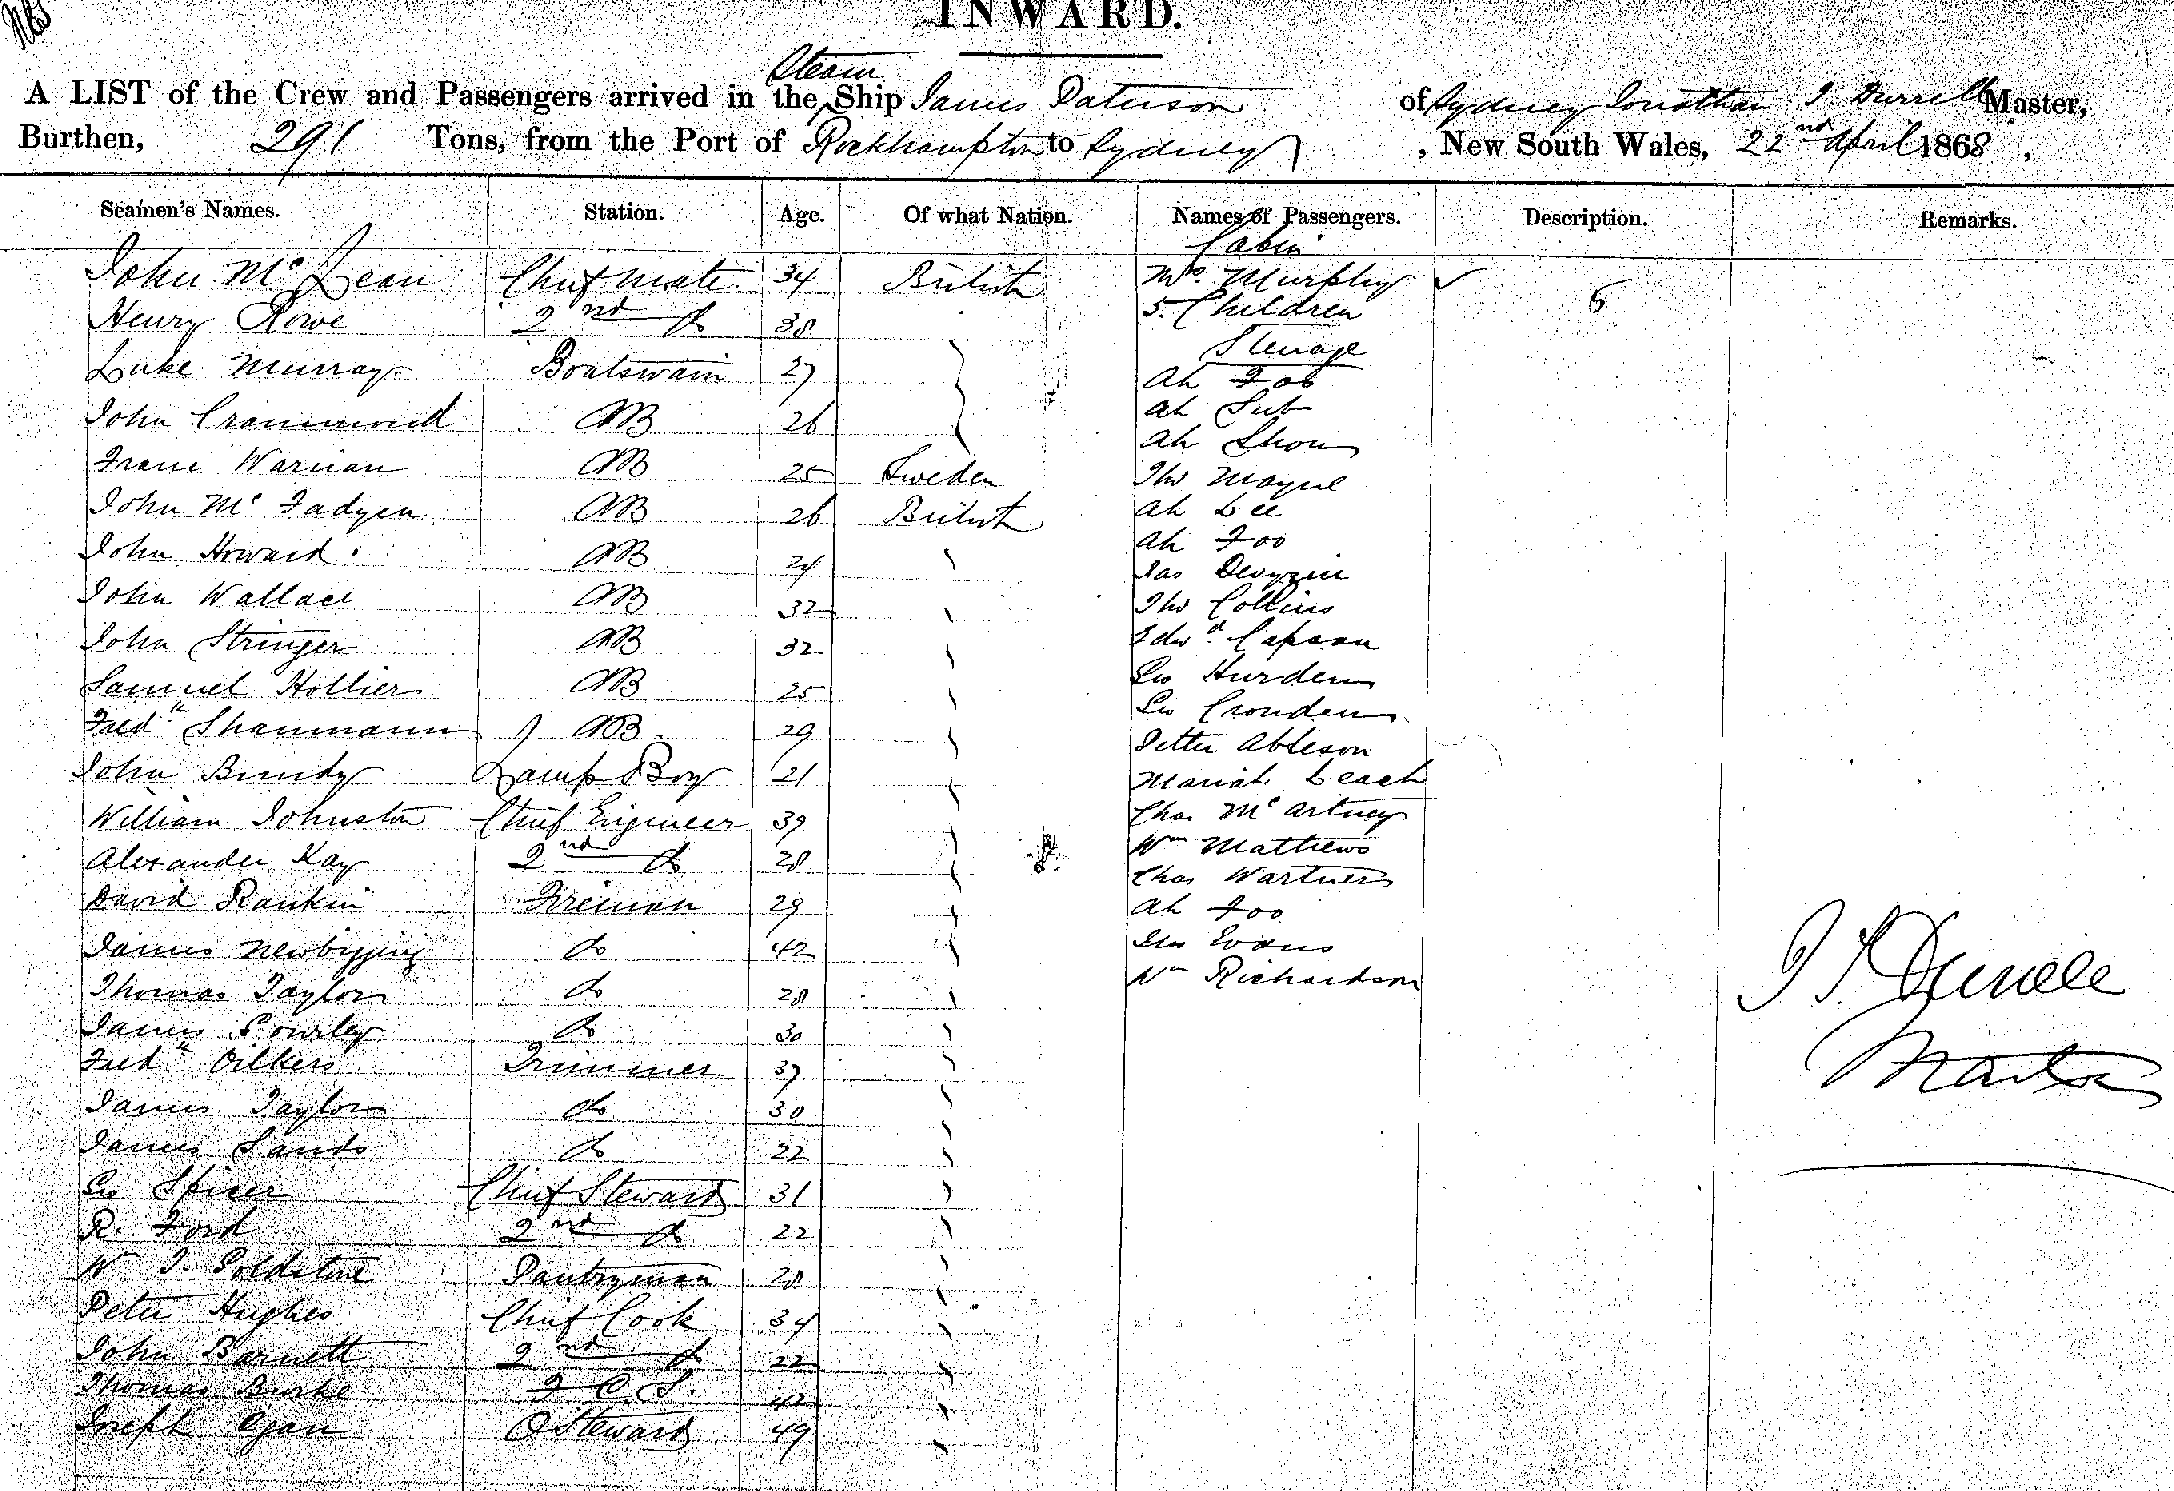 INWARD.
A LIST of the Crew and Passengers arrived in the Steam Ship James Paterson of Sydney Jonathan Master,
Burthen, 291 Tons, from the Port of Rockhampton to Sydney , New South Wales, 22nd April 1868 .
Seamen's Names. Station. Age. Of what Nation. Names of Passengers. Description. Remarks.
Cabin
John Mc Lean Chief Mate 34 British Mrs. Murphy
Henry Rowe 2nd do 38 5 Children
Steerage
Luke Murray Boatswain 27 Ah
Ah
John AB 26 Ah
Warnan AB 25 Sweden Thos Mayne
John Mc Fadyen AB 26 British Ah Lee
Ah Foo
John Howard AB 24 Jas
John Wallace AB 32 Thos Collins
John Stringer AB 32 Edwd
Samuel Hollier AB 25 Geo Hurden
Fredk AB 29 Geo
Peter Ableson
John Bundy Lamp Boy 21 Mariah Leach
William Johnston Chief Engineer 39 Chas Mc Artney
Alexander Kay 2nd do 28 Wm Mathews
Chas
David Rankin Fireman 29 Ah Foo
James Newbigging do 42 Evans
Thomas Taylor do 28 Wm Richardson
James do 30
Fredk Oilkers Trimmer 37
James Taylor do 30
James Sands do 22
Geo Spicer Chief Steward 31
R. Ford 2nd do 22
W Goldstone Pantryman 28
Peter Hughes Chief Cook 34
John Barnett 2nd do 22
Thomas Burke 42
Joseph Steward 49
Master